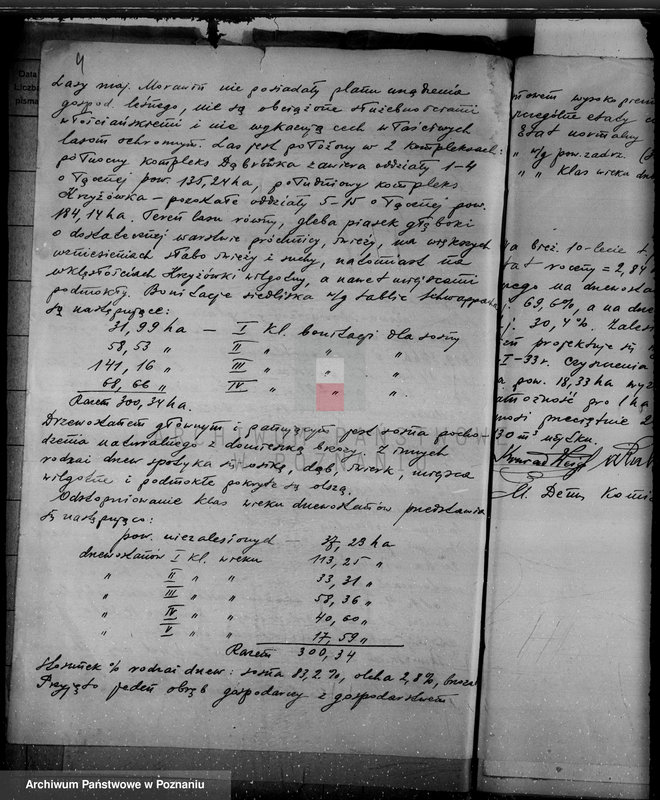 4
Lasy maj. Morawin nie posiadały planu urządzenia
gospod. leśnego, nie są obciążone służebnościami
włościańskiemi i nie wykazują cech właściwych
lasom ochronnym. Las jest położony w 2 kompleksach:
północny kompleks Dąbrówka zawiera oddziały 1-4
o łącznej pow. 135,24 ha, południowy kompleks
Kryżówka - pozostałe oddziały 5-15 o łącznej pow.
184,14 ha. Teren lasu równy, gleba piasek głęboki
o dostatecznej warstwie próchnicy, świeży, na większych
wzniesieniach słabo świeży i suchy, natomiast na
wklęsłościach Kryżówki wilgotny, a nawet miejscami
podmokły. Bonitacje siedliska w/g tablic Schwappacha
są następujące:
31,99 ha - I kl. bonitacji dla sosny
58,53 " II " " "
141,16 " III " " "
68,66 " IV " " "
Razem 300,34 ha.
Drzewostanem głównym i panującym jest sosna pocho-
dzenia naturalnego z domieszką brzozy. Z innych
rodzai drzew spotyka się osikę, dąb, świerk, miejsca
wilgotne i podmokłe pokryte są olszą.
Odstopniowanie klas wieku drzewostanów przedstawia
się następująco:
pow. niezalesionych - 29 ha
drzewostanów I kl. wieku 113,25 "
" II " " 33,31 "
" III " " 58,36 "
" IV " " 40,60 "
" V " " 17,59 "
Razem 300,34
Stosunek % rodzai drzew: sosna 83,2%, olcha 2,8%, brzoza
Przyjęto jeden obręb gospodarczy z gospodarstwem
Data
Liczba
pisma
wysoko
etaty
etat normalny
" w/g pow. zadrz.
" " klas wieku
bież. 10-lecie
roczny = 2,84
na drzewosta
69,6%, a na
30,4%.
projektuje się
I-33r. Czyszczenia
pow. 18,33 ha
pro 1 ha
przeciętnie
30 m³ użytku.
ARCHIWUM PAŃSTWOWE
W POZNANIU
Archiwum Państwowe w Poznaniu